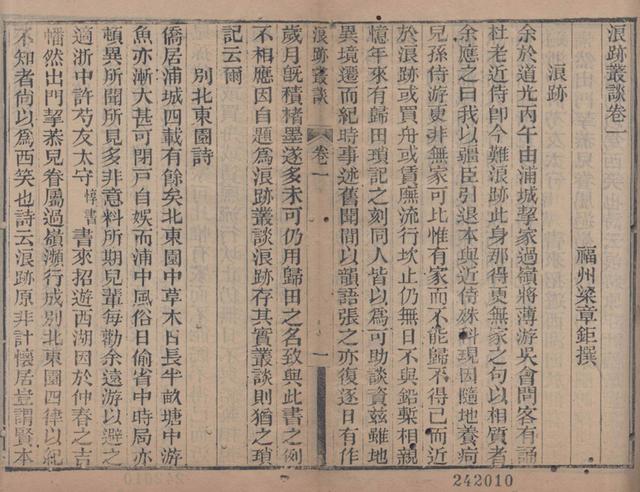 浪跡叢談卷一
福州梁章鉅撰
浪跡
余於道光丙午由浦城挈家過嶺將薄游吳會問客有誦
杜老近侍卽今難浪跡此身那得更無家之句以相質者
余應之曰我以疆臣引退本與近侍殊科現因隨地養疴
兒孫侍游更非無家可比惟有家而不能歸不得已而近
於浪跡或買舟或賃廡流行坎止仍無日不與鉛槧相親
憶年來有歸田瑣記之刻同人皆以爲可助談資玆雖地
異境遷而紀時事述舊聞間以韻語張之亦復逐日有作
浪跡叢談
卷一
一
歲月旣積楮墨遂多未可仍用歸田之名致與此書之例
不相應因自題爲浪跡叢談浪跡存其實叢談則猶之瑣
記云爾
別北東園詩
僑居浦城四載有餘矣北東園中草木日長半畝塘中游
魚亦漸大甚可閉戶自娛而浦中風俗日偷省中時局亦
頓異所聞所見多非意料所期兒輩每勸余遠游以避之
適浙中許芍友太守惇書書來招遊西湖因於仲春之吉
幡然出門挈恭兒眷屬過嶺瀕行成別北東園四律以紀
不知者尚以爲西笑也詩云浪跡原非計懷居豈謂賢本
242010